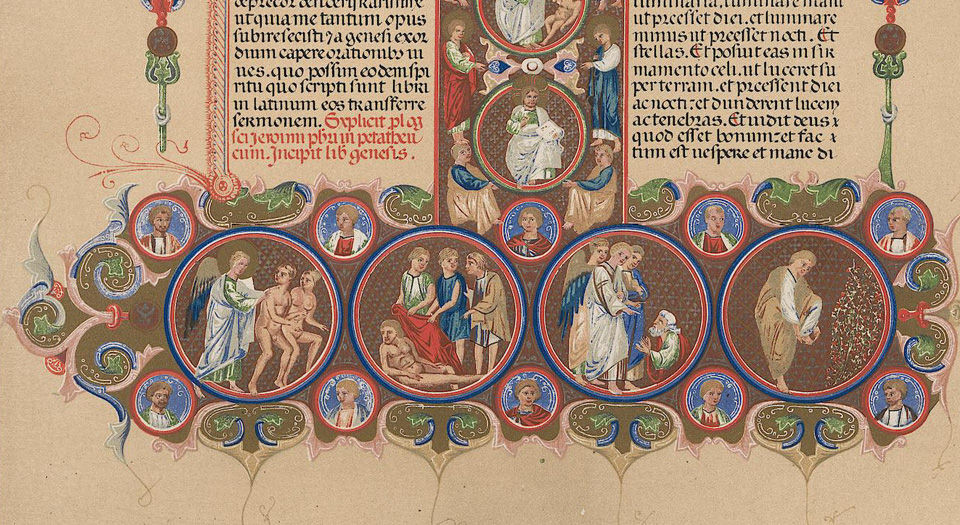 ut quia me tantum opus
subire fecisti ⁊ a genesi exor
dium capere orationibꝫ iu
ues. quo possim eodem spi
ritu quo scripti sunt libri
in latinum eos transferre
sermonem. Explicit plog
sci ieronimi pbri in petatheu
cum. Incipit lib genesis.
luminaria. luminare maiu
ut preesset diei. et luminare
minus ut preesset nocti. Et
stellas. Et posuit eas in fir
mamento celi. ut lucerẽt su
per terram. et preessent diei
ac nocti: et diuiderent lucem
ac tenebras. Et uidit deus
quod esset bonum: et fac
tum est uespere et mane di